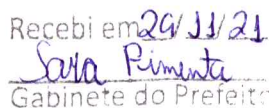 Recebi em 29/11/21
Sara Pimenta
Gabinete do Prefeito